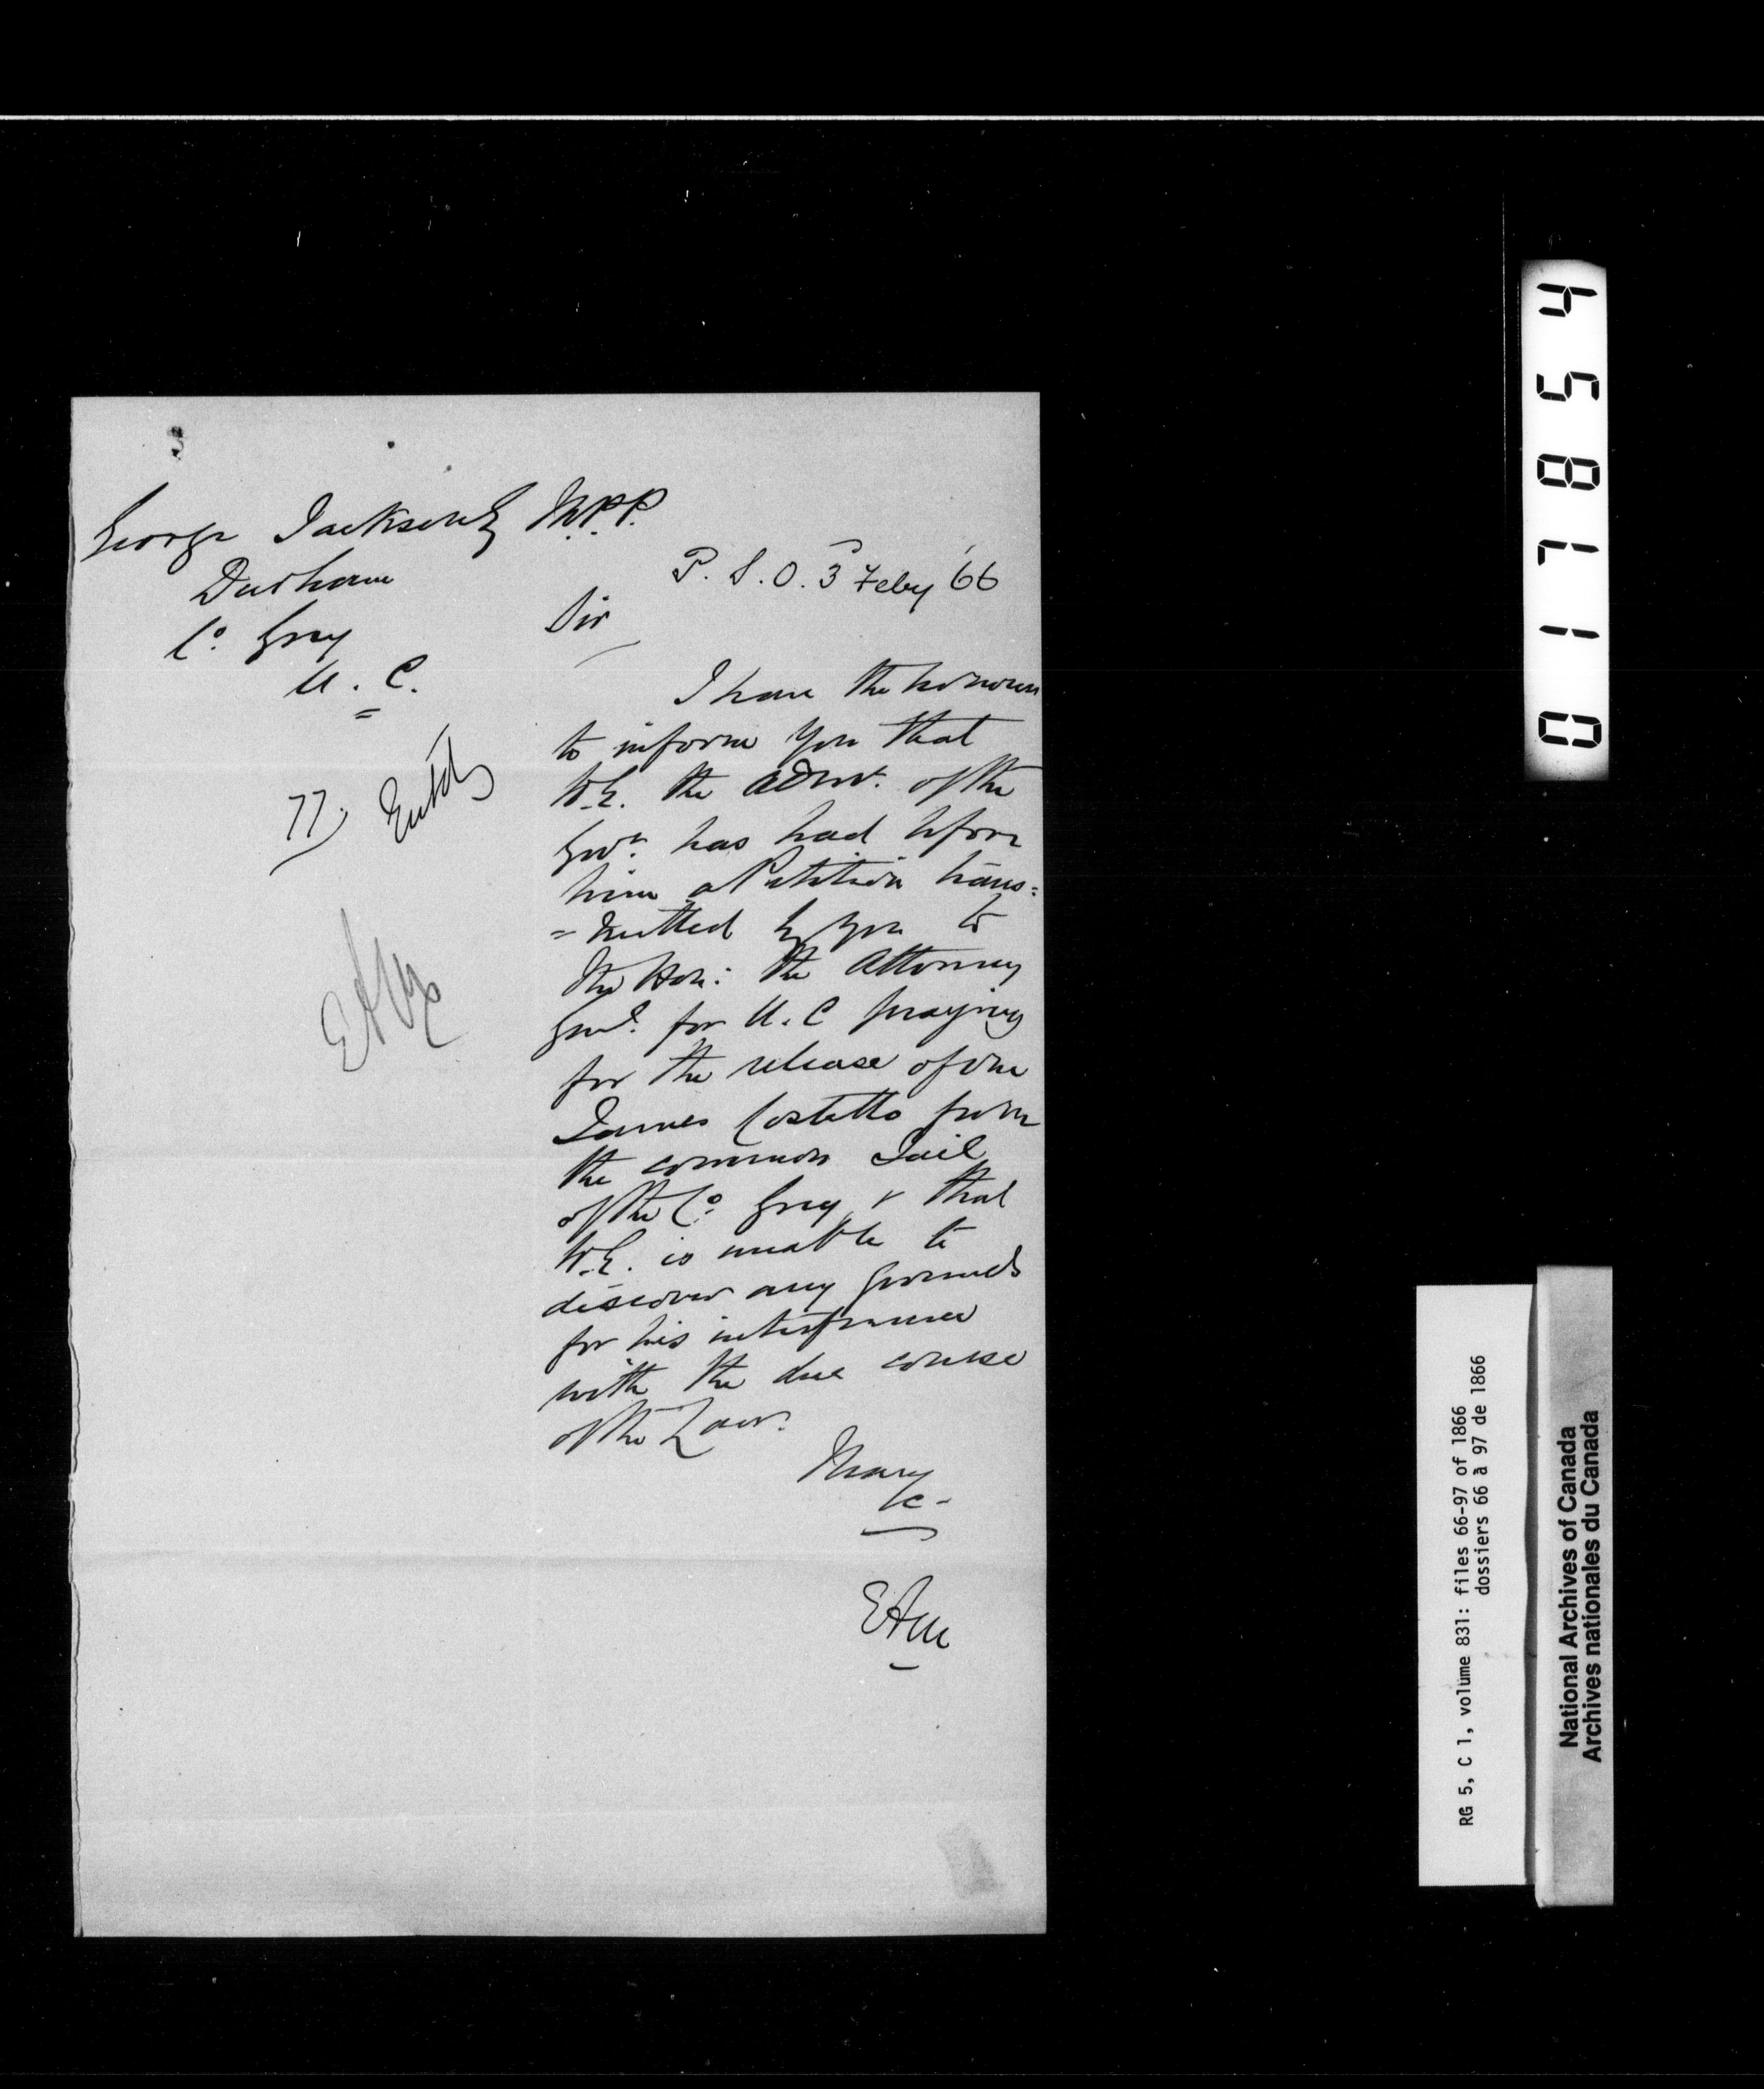 George Jackson Esq M.P.P.
Durham
Co. Grey
U. C.
=
P. S. O. 3 Feby '66
Sir
77. Entd
I have the honour
to inform you that
H.E. the Admr. of the
Govt. has had before
him a Petition trans=
=mitted by you to
the Hon: the Attorney
Genl. for U. C praying
for the release of one
James Costello from
the common Jail
of the Co. Grey & that
H.E. is unable to
discover any grounds
for his interference
with the due course
of the Law.
I have
&c-
EAM
017854
RG 5, C 1, volume 831: files 66-97 of 1866
dossiers 66 à 97 de 1866
National Archives of Canada
Archives nationales du Canada